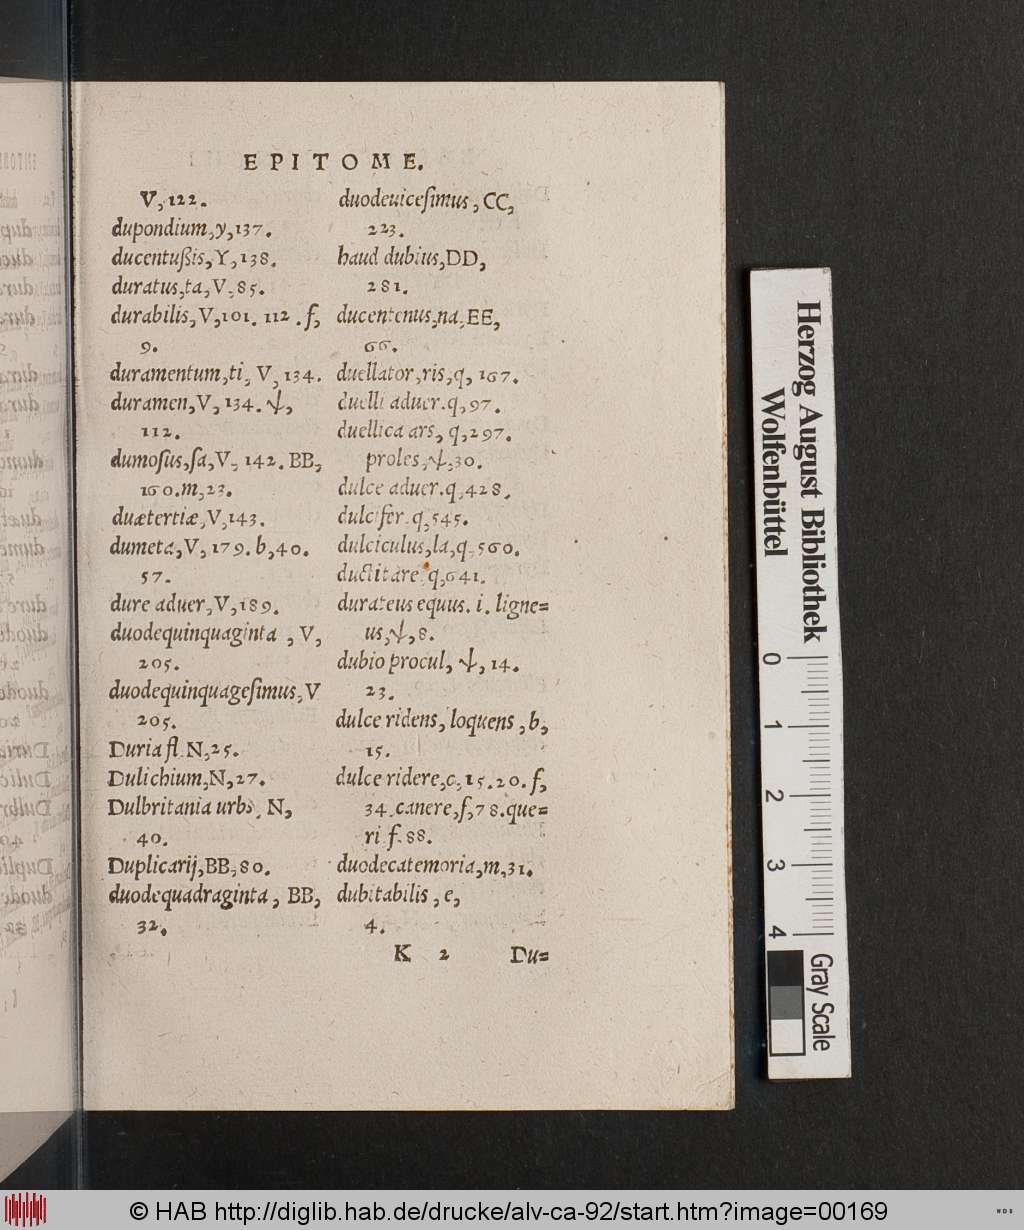 EPITOME.
V, 122.
dupondium, y, 137.
ducentußis, Y, 138.
duratus, ta, V, 85.
durabilis, V, 101. 112. f,
9.
duramentum, ti, V, 134.
duramen, V, 134. ψ,
112.
dumoſus, ſa, V, 142. BB,
160. m, 23.
duætertiæ, V, 143.
dumeta, V, 179. b, 40.
57.
dure aduer, V, 189.
duodequinquaginta, V,
205.
duodequinquageſimus, V
205.
Duria fl. N, 25.
Dulichium, N, 27.
Dulbritania urbs, N,
40.
Duplicarij, BB, 80.
duodequadraginta, BB,
32.
duodeuiceſimus, CC,
223.
haud dubius, DD,
281.
ducentenus, na, EE,
66.
duellator, ris, q, 167.
duelli aduer. q, 97.
duellica ars, q, 297.
proles, ψ, 30.
dulce aduer. q, 428.
dulcifer. q, 545.
dulciculus, la, q, 560.
ductitare. q, 641.
durateus equus. i. ligne=
us, ψ, 8.
dubio procul, ψ, 14.
23.
dulce ridens, loquens, b,
15.
dulce ridere, c, 15. 20. f,
34. canere, f, 78. que=
ri f. 88.
duodecatemoria, m, 31.
dubitabilis, e,
4.
K 2 Du=
Herzog August Bibliothek
Wolfenbüttel
0 1 2 3 4
Gray Scale
© HAB http://diglib.hab.de/drucke/alv-ca-92/start.htm?image=00169